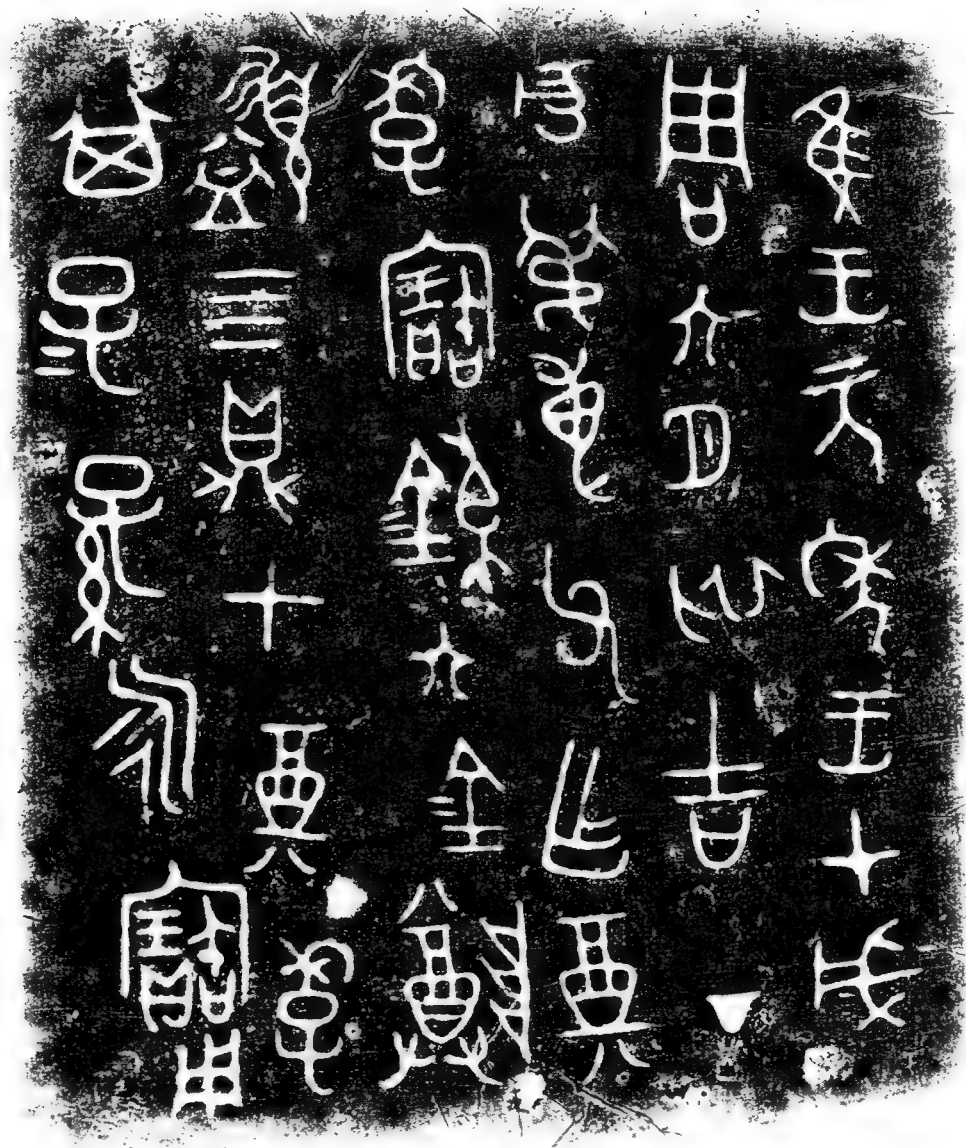 隹王元年王才成
周六月初吉丁
亥弔尃父乍奠
季寶鐘六金尊
盨四鼎七奠季
其子=孫永寶用